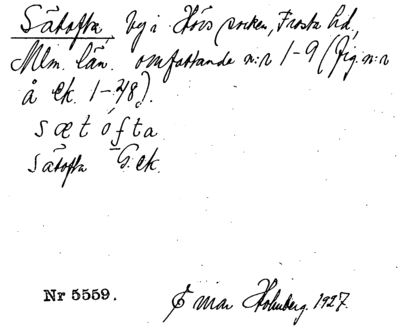 Sätofta, by i Hörs socken, Frosta hd,
Mlm. län. omfattande n:r 1-9 (fig. n:r
å ek. 1-48).
sætófta
Sätofta G. ek.
Nr 5559. Einar Holmberg. 1927.